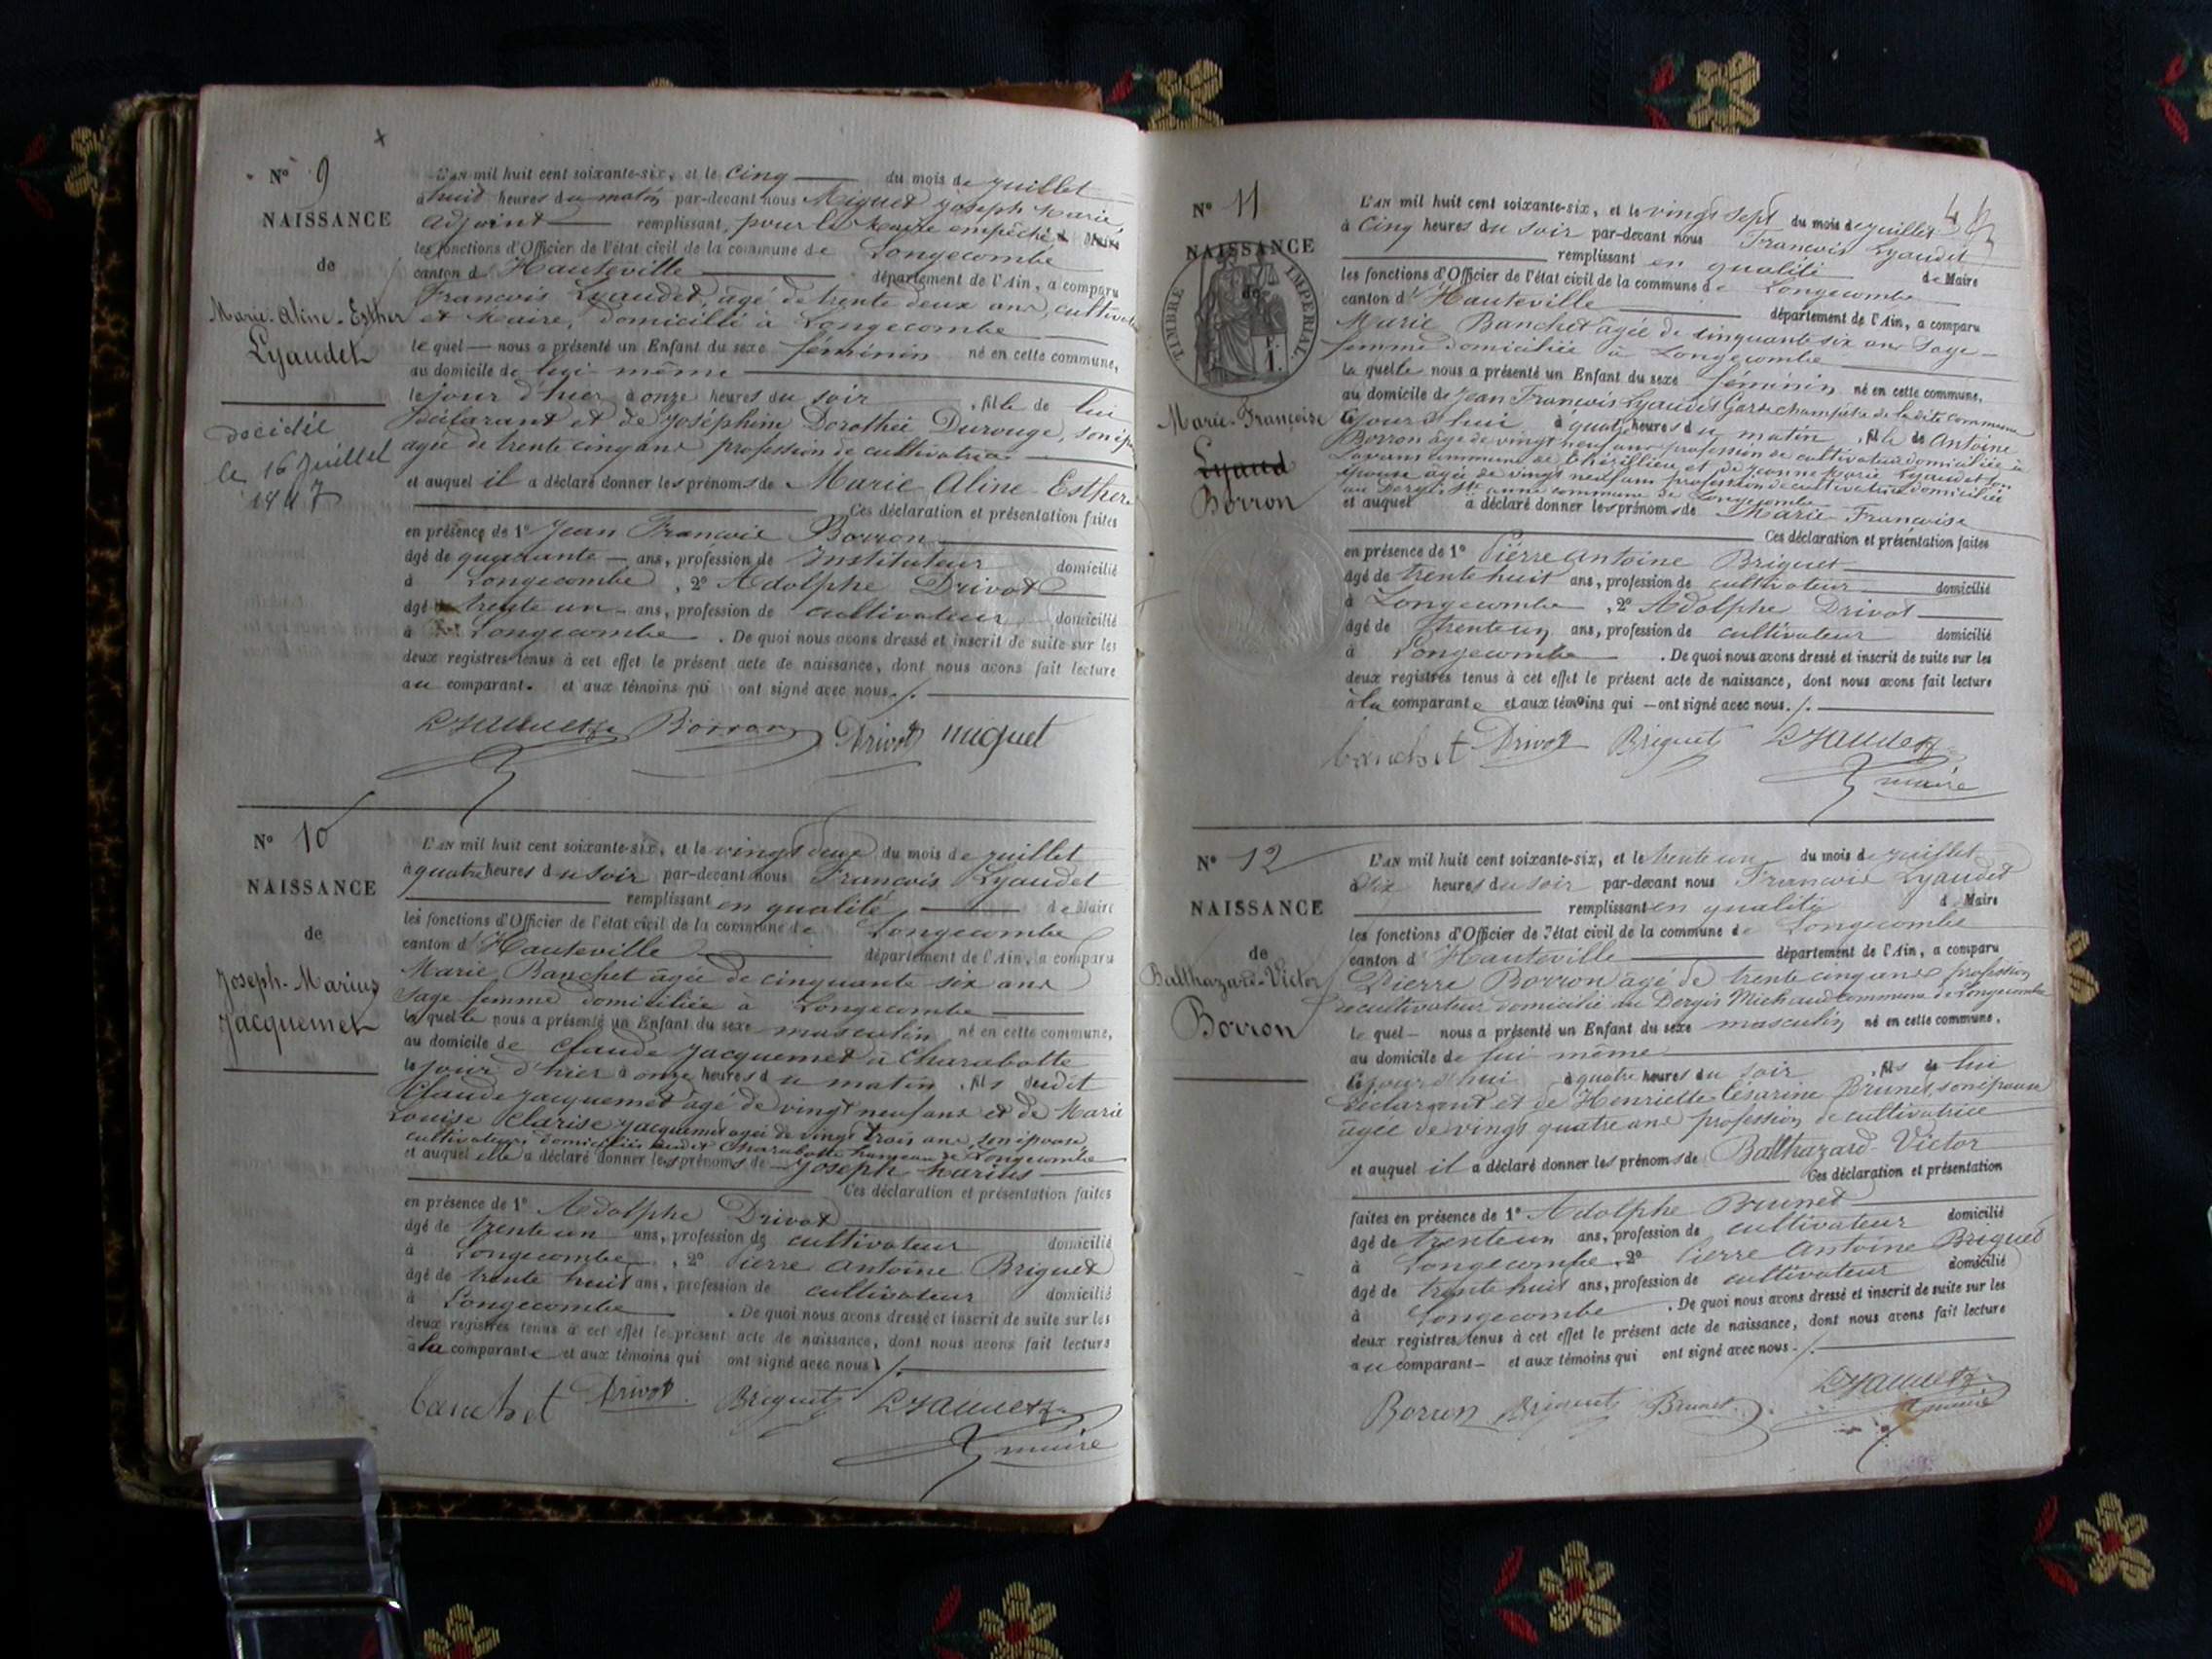 N° 9
NAISSANCE
de
Marie-Aline-Esther
Lyaudet
décédée
le 16 Juillet
1947
L'AN mil huit cent soixante-six, et le cinq du mois de juillet
à huit heures du matin par-devant nous Miguet Joseph Marie
adjoint remplissant, pour le Maire empêché
les fonctions d'Officier de l'état civil de la commune de Longecombe
canton d'Hauteville département de l'Ain, a comparu
François Lyaudet, âgé de trente deux ans, cultivateur
et Maire, domicilié à Longecombe
lequel nous a présenté un Enfant du sexe féminin né en cette commune,
au domicile de
le jour d'hier à onze heures du soir, fille de lui
déclarant et de Joséphine Dorothée Durouge, son
agée de trente cinq ans profession de cultivatrice
et auquel il a déclaré donner les prénoms de Marie Aline-Esther
Ces déclaration et présentation faites
en présence de 1° Jean Francois Borron
âgé de quarante ans, profession de Instituteur domicilié
à Longecombe, 2° Adolphe Drivot
âgé de trente un ans, profession de cultivateur domicilié
à Longecombe. De quoi nous avons dressé et inscrit de suite sur les
deux registres tenus à cet effet le présent acte de naissance, dont nous avons fait lecture
au comparant et aux témoins qui ont signé avec nous ./.
Lyaudet Borron Drivot miguet
N° 10
NAISSANCE
de
Joseph-Marius
Jacquemet
L'AN mil huit cent soixante-six, et le vingt deux du mois de juillet
à quatre heures du soir par-devant nous Francois Lyaudet
remplissant en qualité de Maire
les fonctions d'Officier de l'état civil de la commune de Longecombe
canton d'Hauteville département de l'Ain, a comparu
Marie Banchet âgée de cinquante six ans
Sage femme domiciliée à Longecombe
laquelle nous a présenté un Enfant du sexe masculin né en cette commune,
au domicile de Claude Jacquemet à Charabotte
le jour d'hier à onze heures du matin, fils dudit
Claude Jacquemet âgé de vingt neuf ans et de Marie
Louise Clarise Jacquemet agée de vingt trois ans, son épouse,
cultivateurs domiciliés audit Charabotte hameau de Longecombe
et auquel elle a déclaré donner les prénoms de Joseph Marius
Ces déclaration et présentation faites
en présence de 1° Adolphe Drivot
âgé de trente un ans, profession de cultivateur domicilié
à Longecombe, 2° Pierre Antoine Briguet
âgé de trente huit ans, profession de cultivateur domicilié
à Longecombe. De quoi nous avons dressé et inscrit de suite sur les
deux registres tenus à cet effet le présent acte de naissance, dont nous avons fait lecture
à la comparante et aux témoins qui ont signé avec nous ./.
banchet Drivot Briguet Lyaudet
maire
N° 11
NAISSANCE
de
TIMBRE IMPERIAL
Marie-Francoise
Lyaud
Borron
L'AN mil huit cent soixante-six, et le vingt sept du mois de juillet
à cinq heures du soir par-devant nous Francois Lyaudet
remplissant en qualité de Maire
les fonctions d'Officier de l'état civil de la commune de Longecombe
canton d'Hauteville département de l'Ain, a comparu
Marie Banchet âgée de cinquante six ans Sage-
femme domiciliée à Longecombe
laquelle nous a présenté un Enfant du sexe féminin né en cette commune,
au domicile de Jean Francois Lyaudet Garde champêtre de ladite commune
cejourd'hui à quatre heures du matin, fille de Antoine
Borron âgé de vingt neuf ans profession de cultivateur domicilié à
Lavans commune de Thézillieu, et de Jeanne Marie Lyaudet son
épouse âgée de vingt neuf ans profession de cultivatrice domiciliée
commune de Longecombe
et auquel a déclaré donner les prénoms de Marie Francoise
Ces déclaration et présentation faites
en présence de 1° Pierre Antoine Briguet
âgé de trente huit ans, profession de cultivateur domicilié
à Longecombe, 2° Adolphe Drivot
âgé de trente un ans, profession de cultivateur domicilié
à Longecombe. De quoi nous avons dressé et inscrit de suite sur les
deux registres tenus à cet effet le présent acte de naissance, dont nous avons fait lecture
à la comparante et aux témoins qui ont signé avec nous ./.
banchet Drivot Briguet Lyaudet
maire
N° 12
NAISSANCE
de
Balthazard-Victor
Borron
L'AN mil huit cent soixante-six, et le trente un du mois de juillet
à six heures du soir par-devant nous Francois Lyaudet
remplissant en qualité d Maire
les fonctions d'Officier de l'état civil de la commune de Longecombe
canton d'Hauteville département de l'Ain, a comparu
Pierre Borron âgé de trente cinq ans profession
de cultivateur domicilié au Dergis Michaud commune de Longecombe
lequel nous a présenté un Enfant du sexe masculin né en cette commune,
au domicile de lui même
cejourd'hui à quatre heures du soir, fils de lui
déclarant et de Henriette Césarine Brunet, son épouse
âgée de vingt quatre ans profession de cultivatrice
et auquel il a déclaré donner les prénoms de Balthazard-Victor
Ces déclaration et présentation
faites en présence de 1° Adolphe Brunet
âgé de trente un ans, profession de cultivateur domicilié
à Longecombe, 2° Pierre Antoine Briguet
âgé de trente huit ans, profession de cultivateur domicilié
à Longecombe. De quoi nous avons dressé et inscrit de suite sur les
deux registres tenus à cet effet le présent acte de naissance, dont nous avons fait lecture
au comparant et aux témoins qui ont signé avec nous ./.
Borron Briguet Brunet Lyaudet
maire